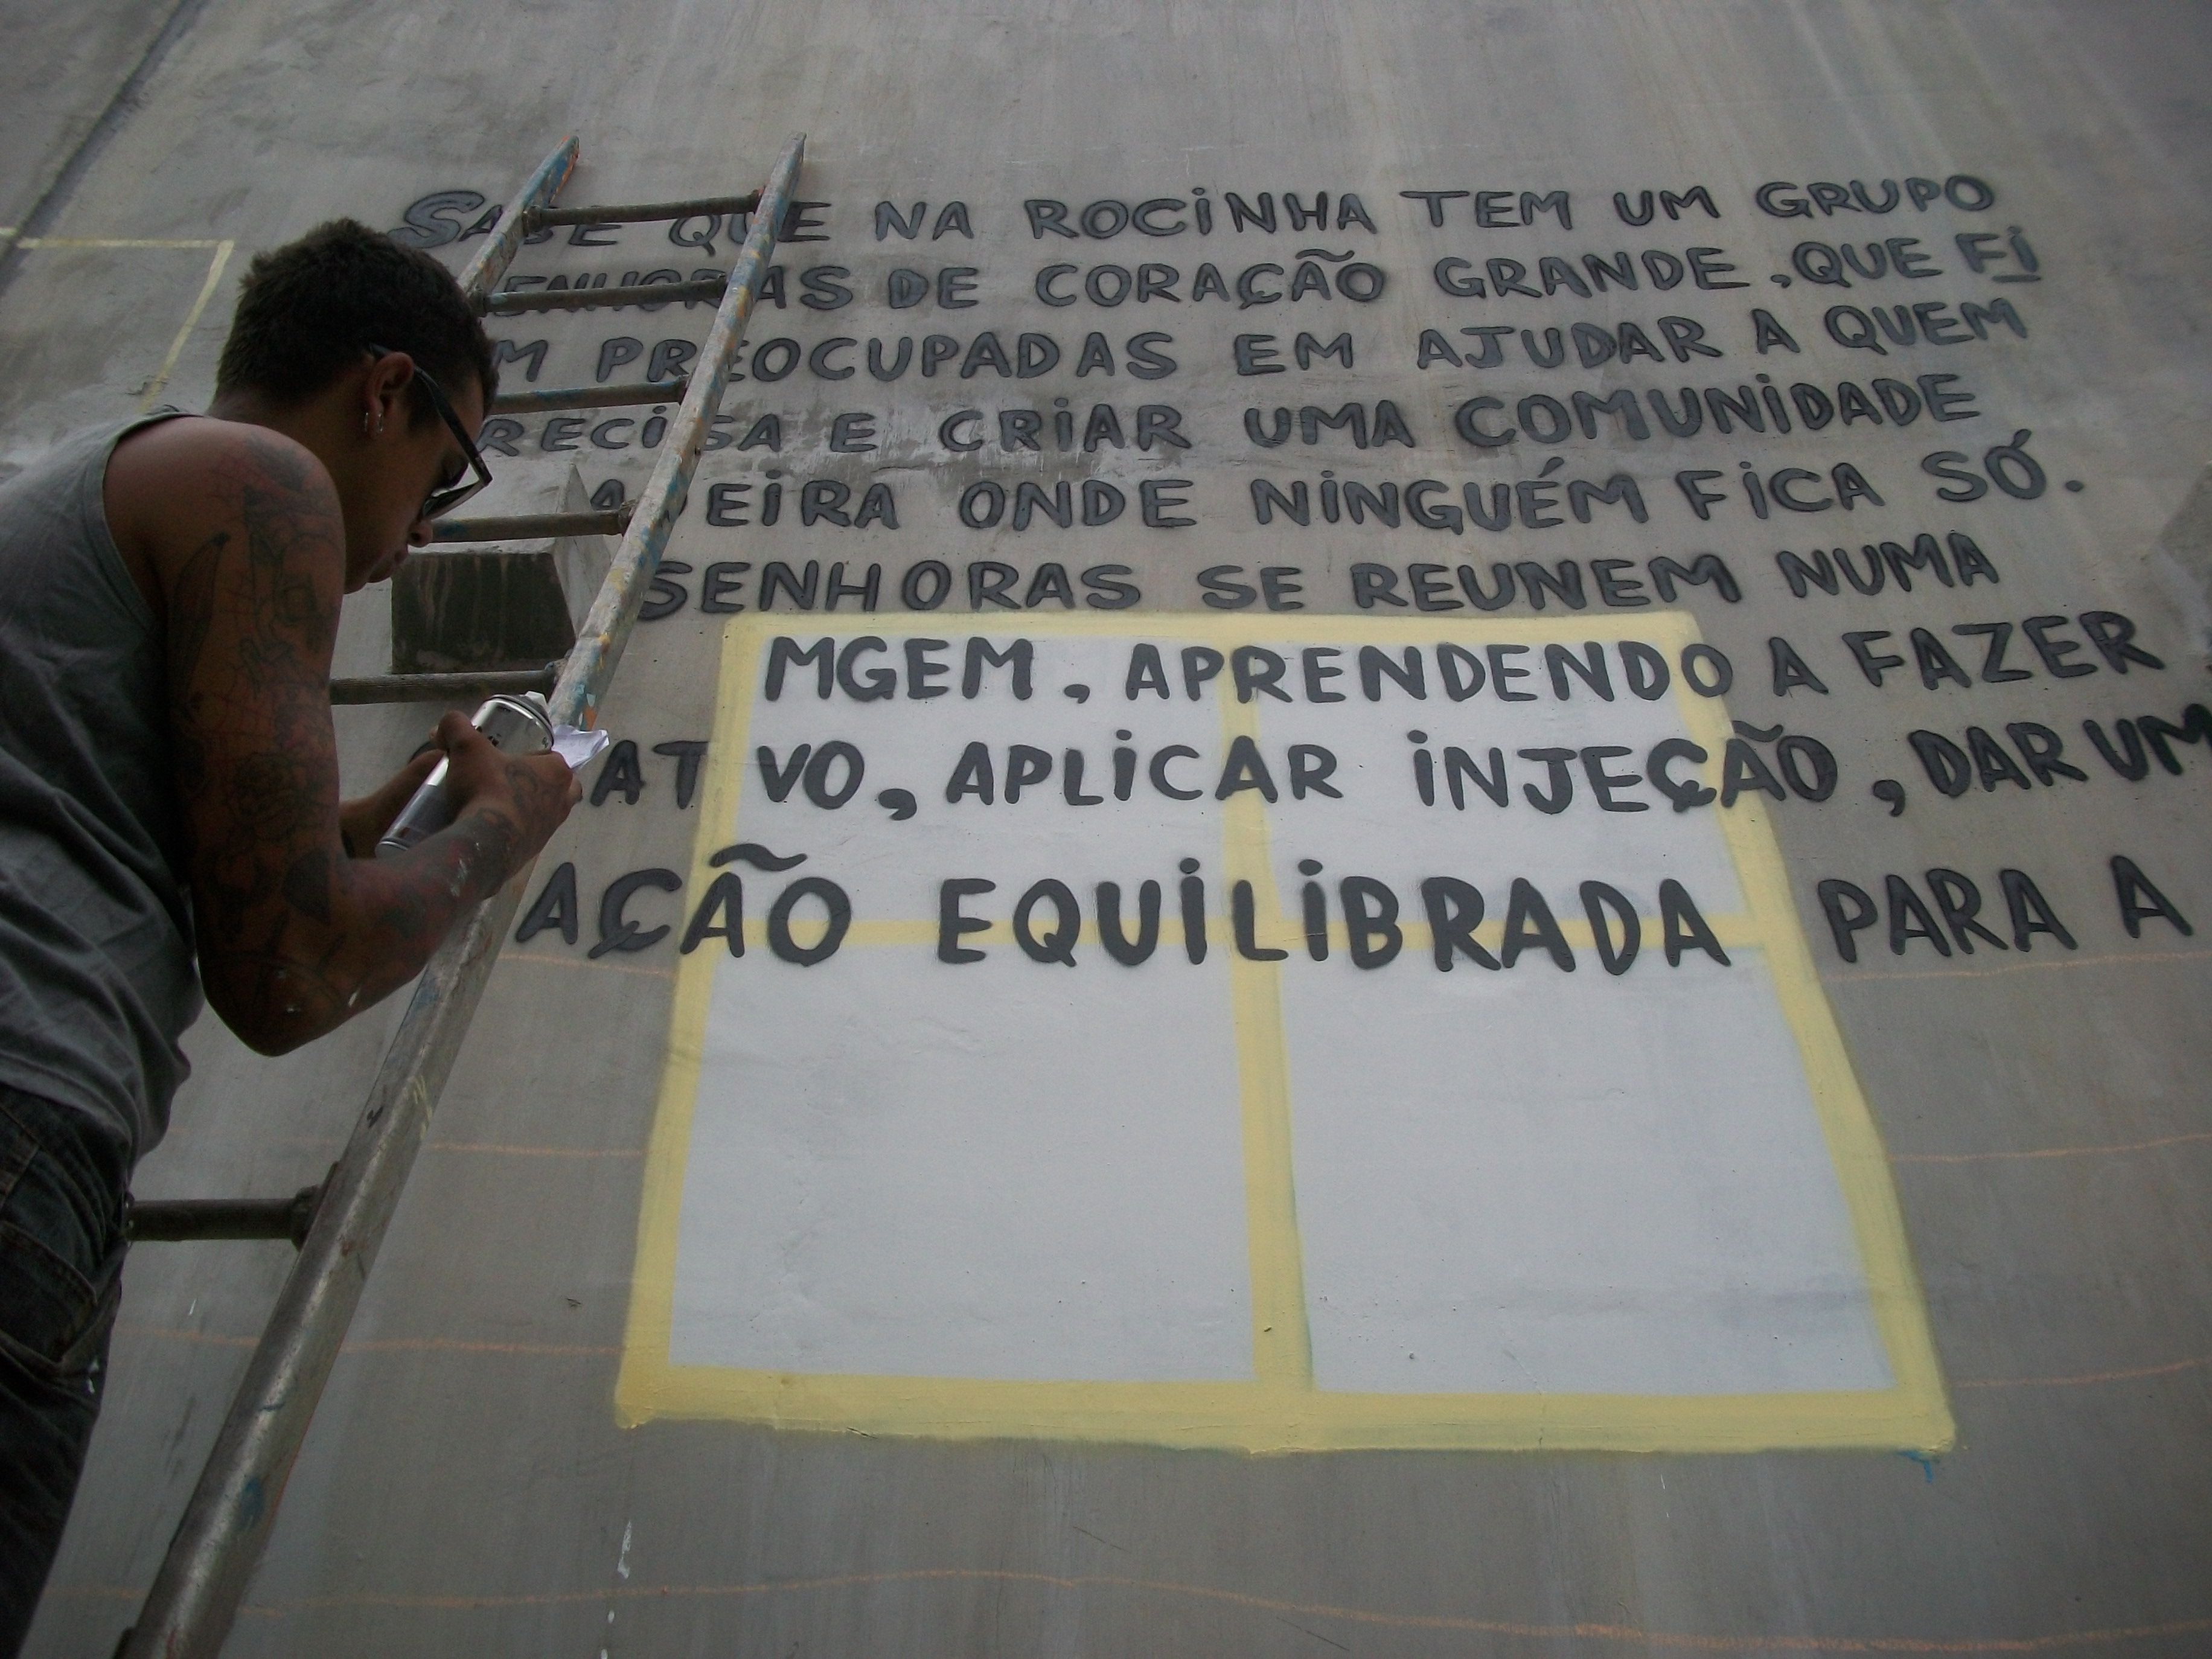 SABE QUE NA ROCINHA TEM UM GRUPO
SENHORAS DE CORAÇÃO GRANDE, QUE FI
M PREOCUPADAS EM AJUDAR A QUEM
PRECISA E CRIAR UMA COMUNIDADE
ONDE NINGUÉM FICA SÓ.
SENHORAS SE REUNEM NUMA
MGEM, APRENDENDO A FAZER
ATIVO, APLICAR INJEÇÃO, DAR UM
AÇÃO EQUILIBRADA PARA A